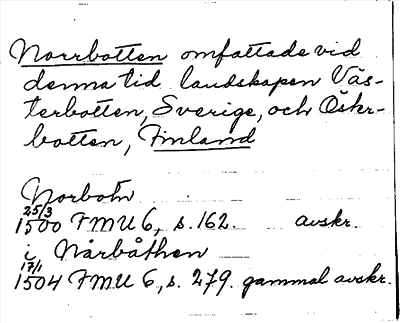 Norrbotten omfattade vid
denna tid landskapen Väs-
terbotten, Sverige, och Öster-
botten, Finland
Norbotn
25/3
1500 FMU 6, s. 162. avskr.
i Nårbåthen
17/1
1504 FMU 6, s. 279. gammal avskr.